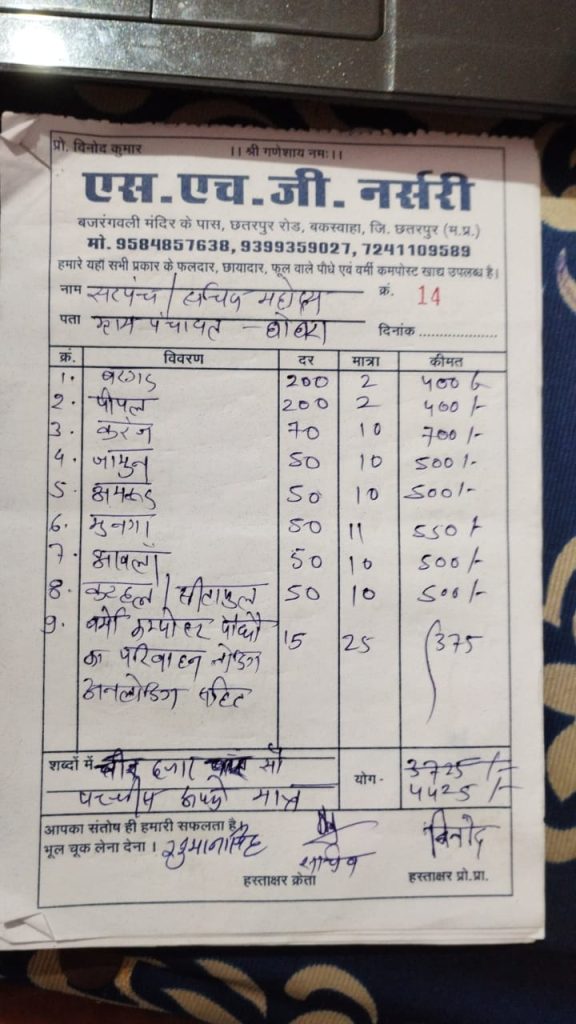 प्रो. विनोद कुमार ।। श्री गणेशाय नमः।।
एस.एच.जी. नर्सरी
बजरंगवली मंदिर के पास, छतरपुर रोड, बकस्वाहा, जि. छतरपुर (म.प्र.)
मो. 9584857638, 9399359027, 7241109589
हमारे यहाँ सभी प्रकार के फलदार, छायादार, फूल वाले पौधे एवं वर्मी कम्पोस्ट खाद्य उपलब्ध है।
नाम सरपंच / सचिव महोदय क्रं. 14
पता ग्राम पंचायत - दिनांक ..................
क्रं. विवरण दर मात्रा कीमत
1. बरगद 200 2 400/-
2. पीपल 200 2 400/-
3. करंज 70 10 700/-
4. जामुन 50 10 500/-
5. अमरूद 50 10 500/-
6. मुनगा 50 11 550/-
7. आवलाँ 50 10 500/-
8. कटहल / सीताफल 50 10 500/-
9. वर्मी कम्पोस्ट पौधों 15 25 375
का परिवाहन लोडिंग
अनलोडिंग सहित
शब्दों में हजार सौ योग - 3725/-
पच्चीस रूपये मात्र 4425/-
आपका संतोष ही हमारी सफलता है।
भूल चूक लेना देना। सचिव विनोद
हस्ताक्षर क्रेता हस्ताक्षर प्रो.प्रा.